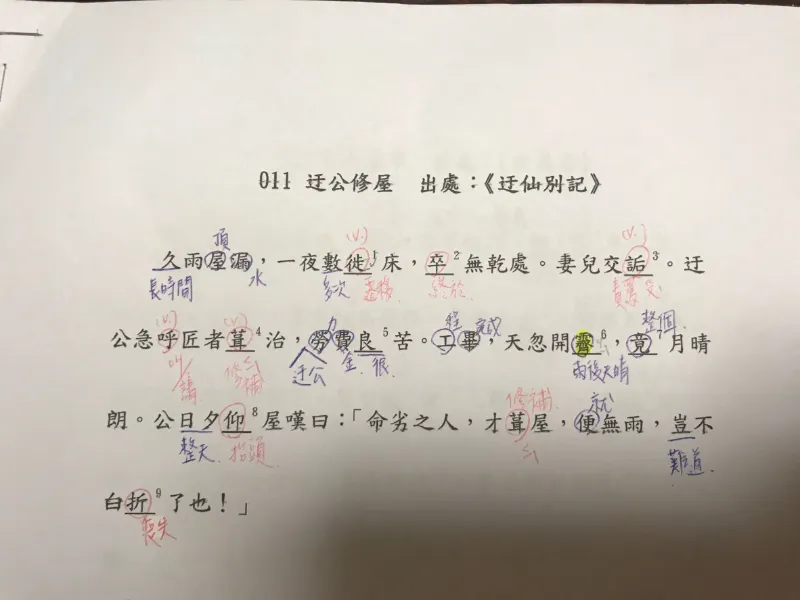 011 迂公修屋 出處：《迂仙別記》
頂
(v.)
(v.)
久雨屋漏，一夜數徙1床，卒2無乾處。妻兒交詬3。迂
長時間
水
多次
終於
責罵
(v.)
(v.)
力
程
完成
整個
公急呼匠者葺4治，勞費良5苦。工畢，天忽開霽6，竟7月晴
叫/請
修補
ㄑㄧˋ
迂公
金
很
雨後天晴
修補
就
朗。公日夕仰8屋嘆曰：「命劣之人，才葺屋，便無雨，豈不
整天
抬頭
難道
白折9了也！」
喪失